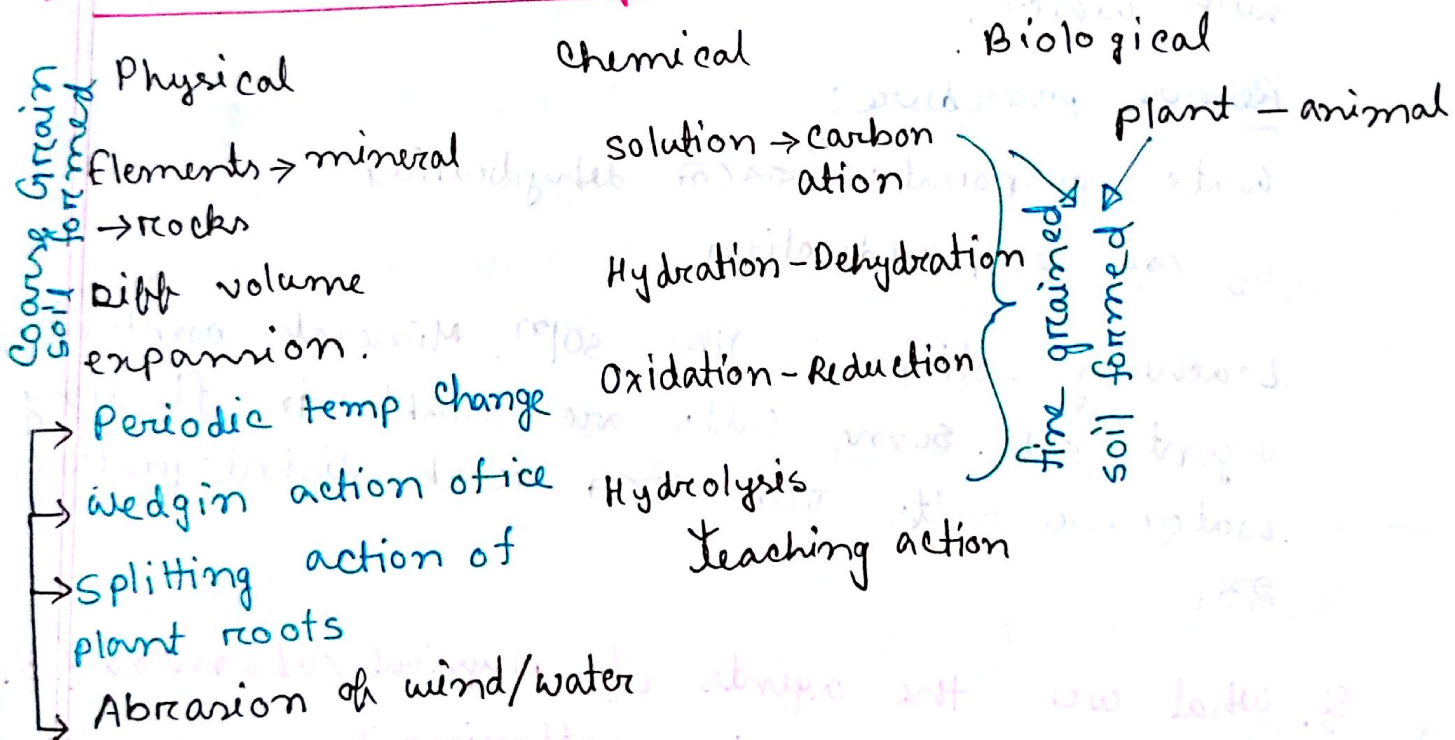 Physical
Coarse Grain
soil formed
Elements → mineral
→ rocks
Diff volume
expansion.
→ Periodic temp change
→ Wedgin action of ice
→ Splitting action of
plant roots
→ Abrasion of wind/water
Chemical
Solution → Carbon
ation
Hydration - Dehydration
Oxidation - Reduction
Hydrolysis
Leaching action
fine grained
soil formed
Biological
plant - animal